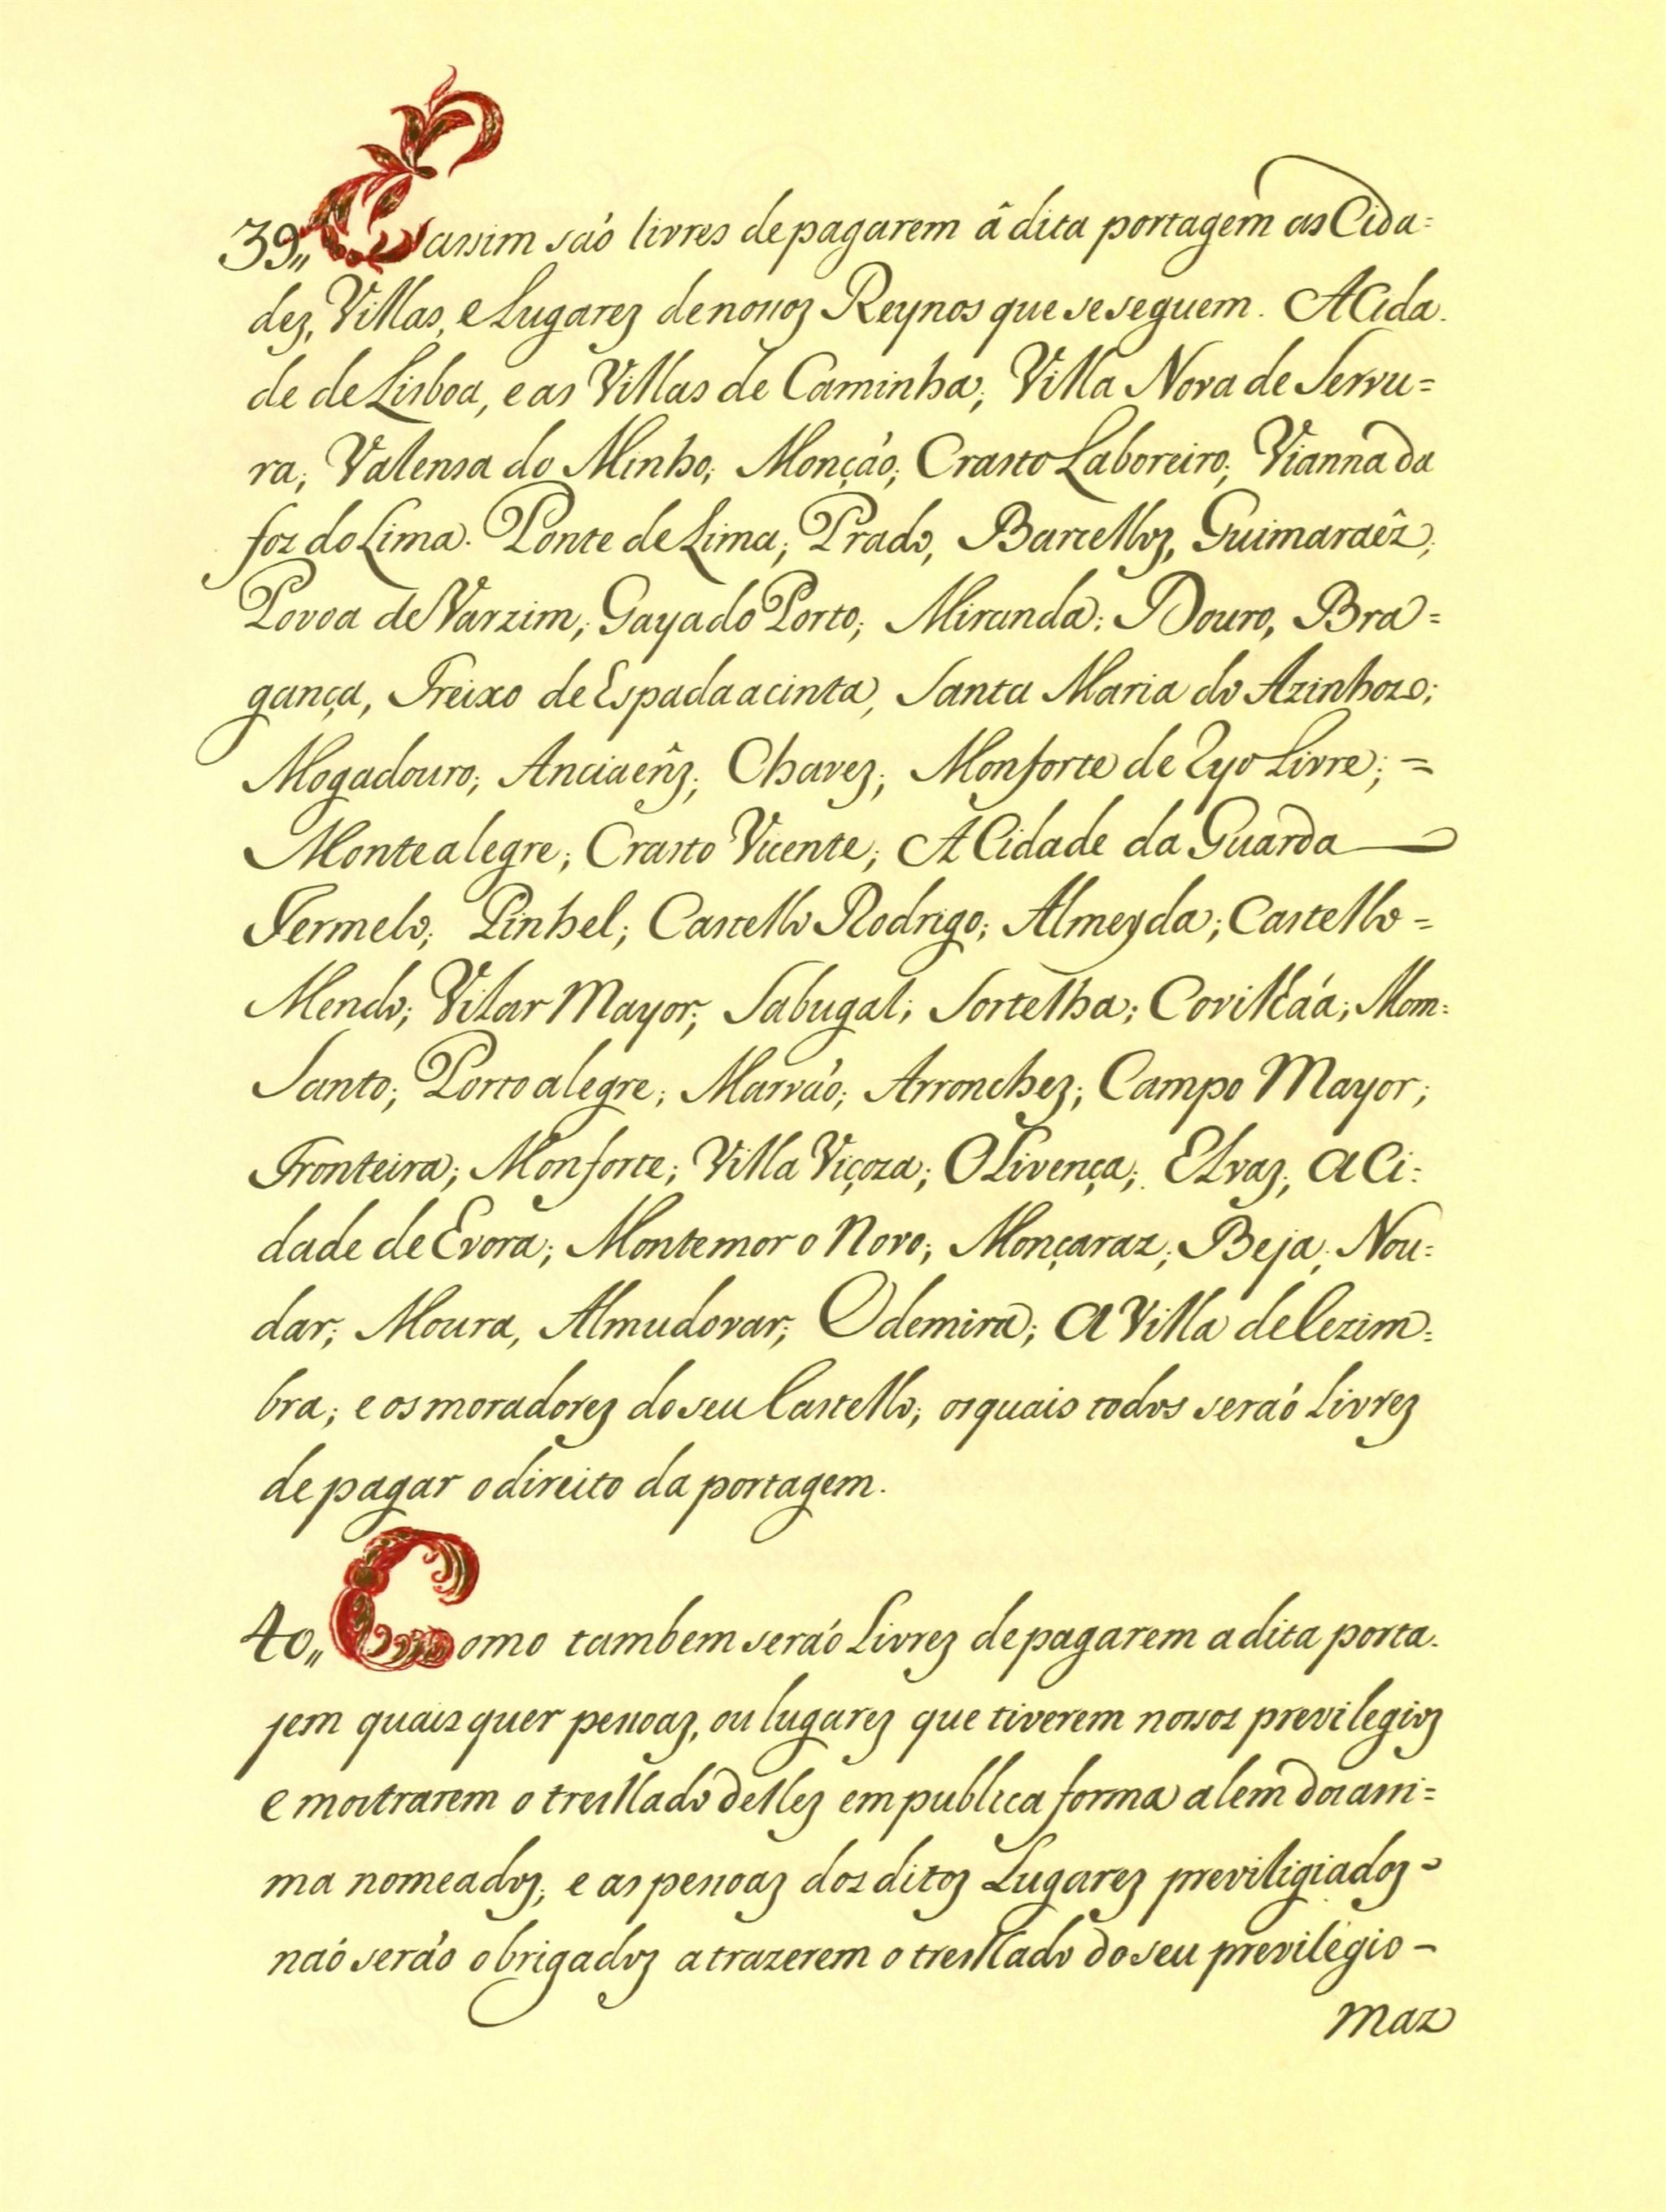 39,, E assim saó livres de pagarem â dita portagem as Cida=
dez, Villas, e Lugarez de nossoz Reynos que se seguem. A Cida.
de de Lisboa, e as Villas de Caminha; Villa Nova de Servu=
ra; Valensa do Minho; Monçaó; Crasto Laboreiro; Vianna da
foz do Lima. Ponte de Lima; Prado, Barcelloz, Guimaraêz;
Povoa de Varzim; Gaya do Porto; Miranda: Douro, Bra=
gança, Freixo de Espadaacinta, Santa Maria do Azinhozo;
Mogadouro; Anciaeñz; Chavez; Monforte de Ryo Livre; =
Montealegre; Crasto Vicente; A Cidade da Guarda
Jermelo; Pinhel; Castello Rodrigo; Almeyda; Castello=
Mendo; Vilar Mayor; Sabugal; Sortelha; Covilháa; Mom:
Santo; Portoalegre; Marvaó; Arronchez; Campo Mayor;
Fronteira; Monforte; Villa Viçoza; Olivença; Elvaz; a Ci:
dade de Evora; Montemor o Novo; Monçaraz; Beja; Nou:
dar; Moura, Almudovar; Odemira; a Villa de Cezim:
bra; e os moradorez do seu Castello; os quais todos seraó Livrez
de pagar o direito da portagem.
40,, Como tambem seraó Livrez de pagarem a dita porta.
jem quaiz quer pessoaz, ou lugarez que tiverem nossoz previlegioz
e mostrarem o tresllado dellez em publica forma alem doz assi=
ma nomeadoz; e as pessoaz doz ditoz Lugarez previligiadoz -
naó seraó obrigadoz a trazerem o tresllado do seu previlegio -
maz